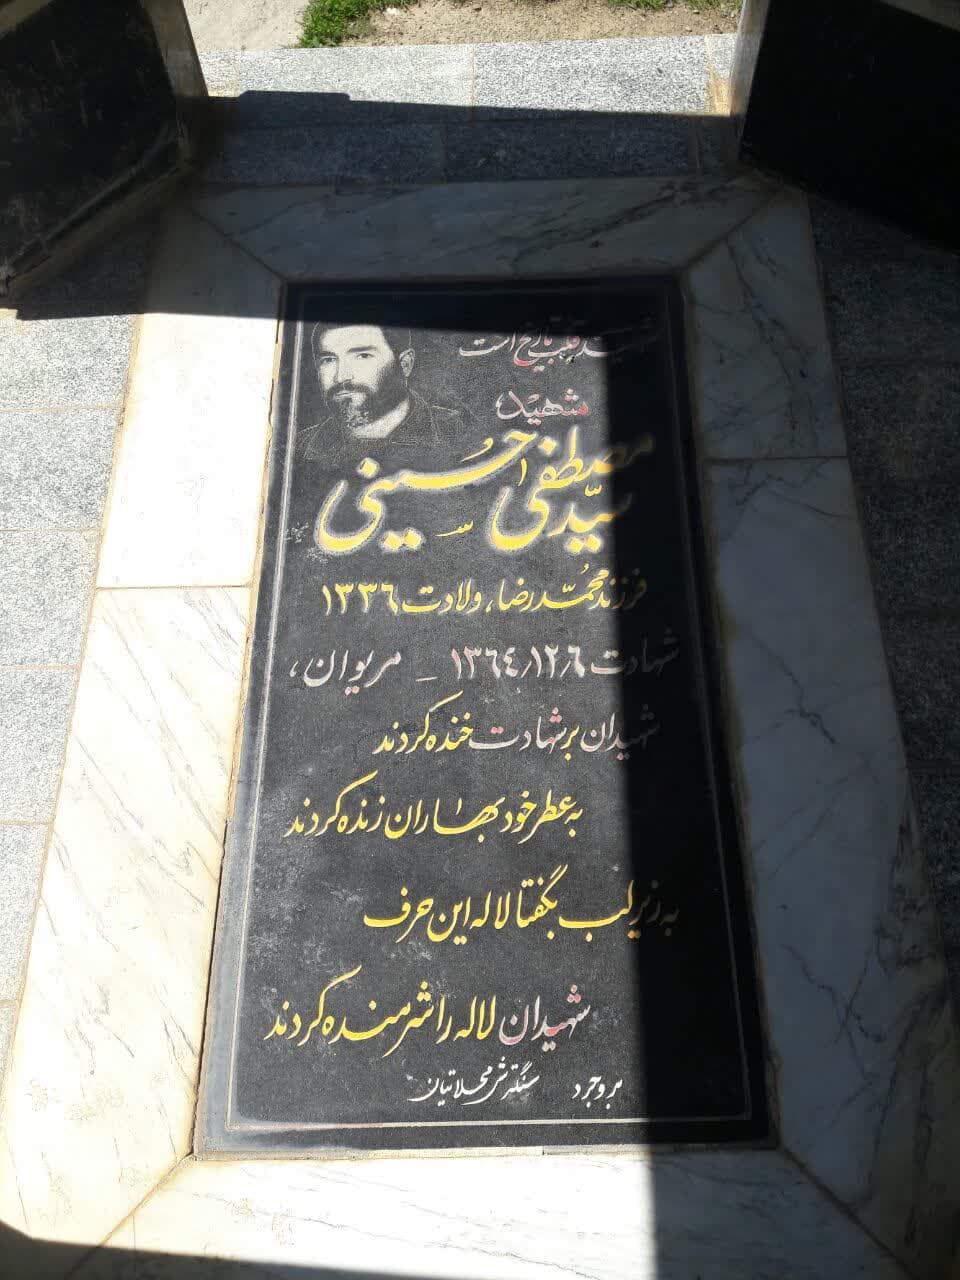 شهید قلب تاریخ است
شهید،
سید مصطفی حسینی
فرزند محمّدرضا، ولادت ۱۳۳۶
شهادت ۱۳۶۴/۱۲/۶ _ مریوان،
شهیدان بر شهادت خنده کردند
به عطر خود بهاران زنده کردند
به زیر لب بگفتا لاله این حرف
شهیدان لاله را شرمنده کردند
بروجرد سنگتراشی محلاتیان